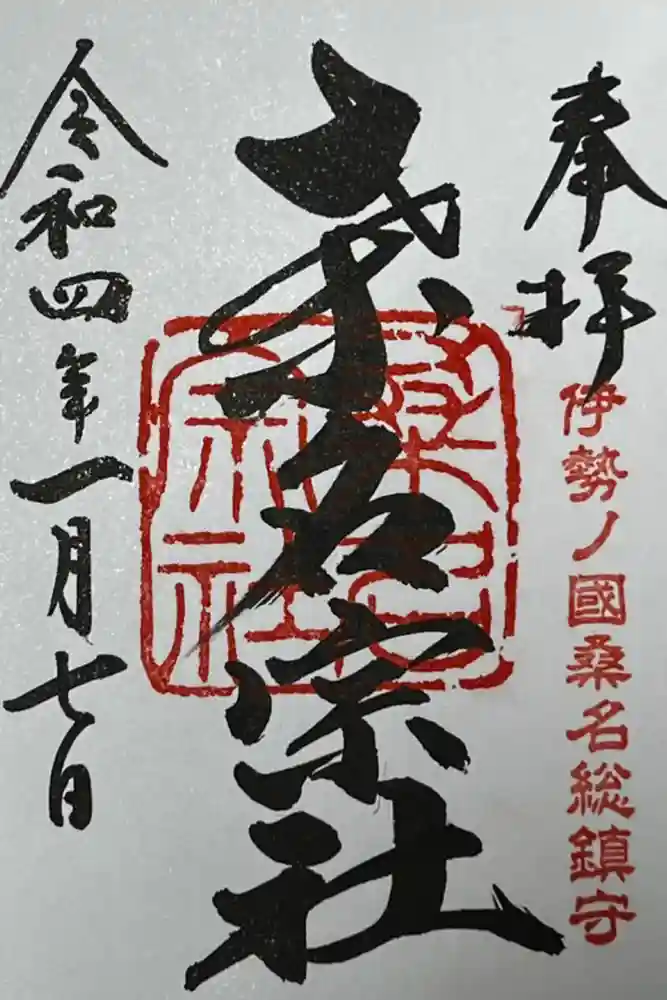 奉拝
伊勢ノ國桑名総鎮守
桑名宗社
桑名
宗社
令和四年一月七日